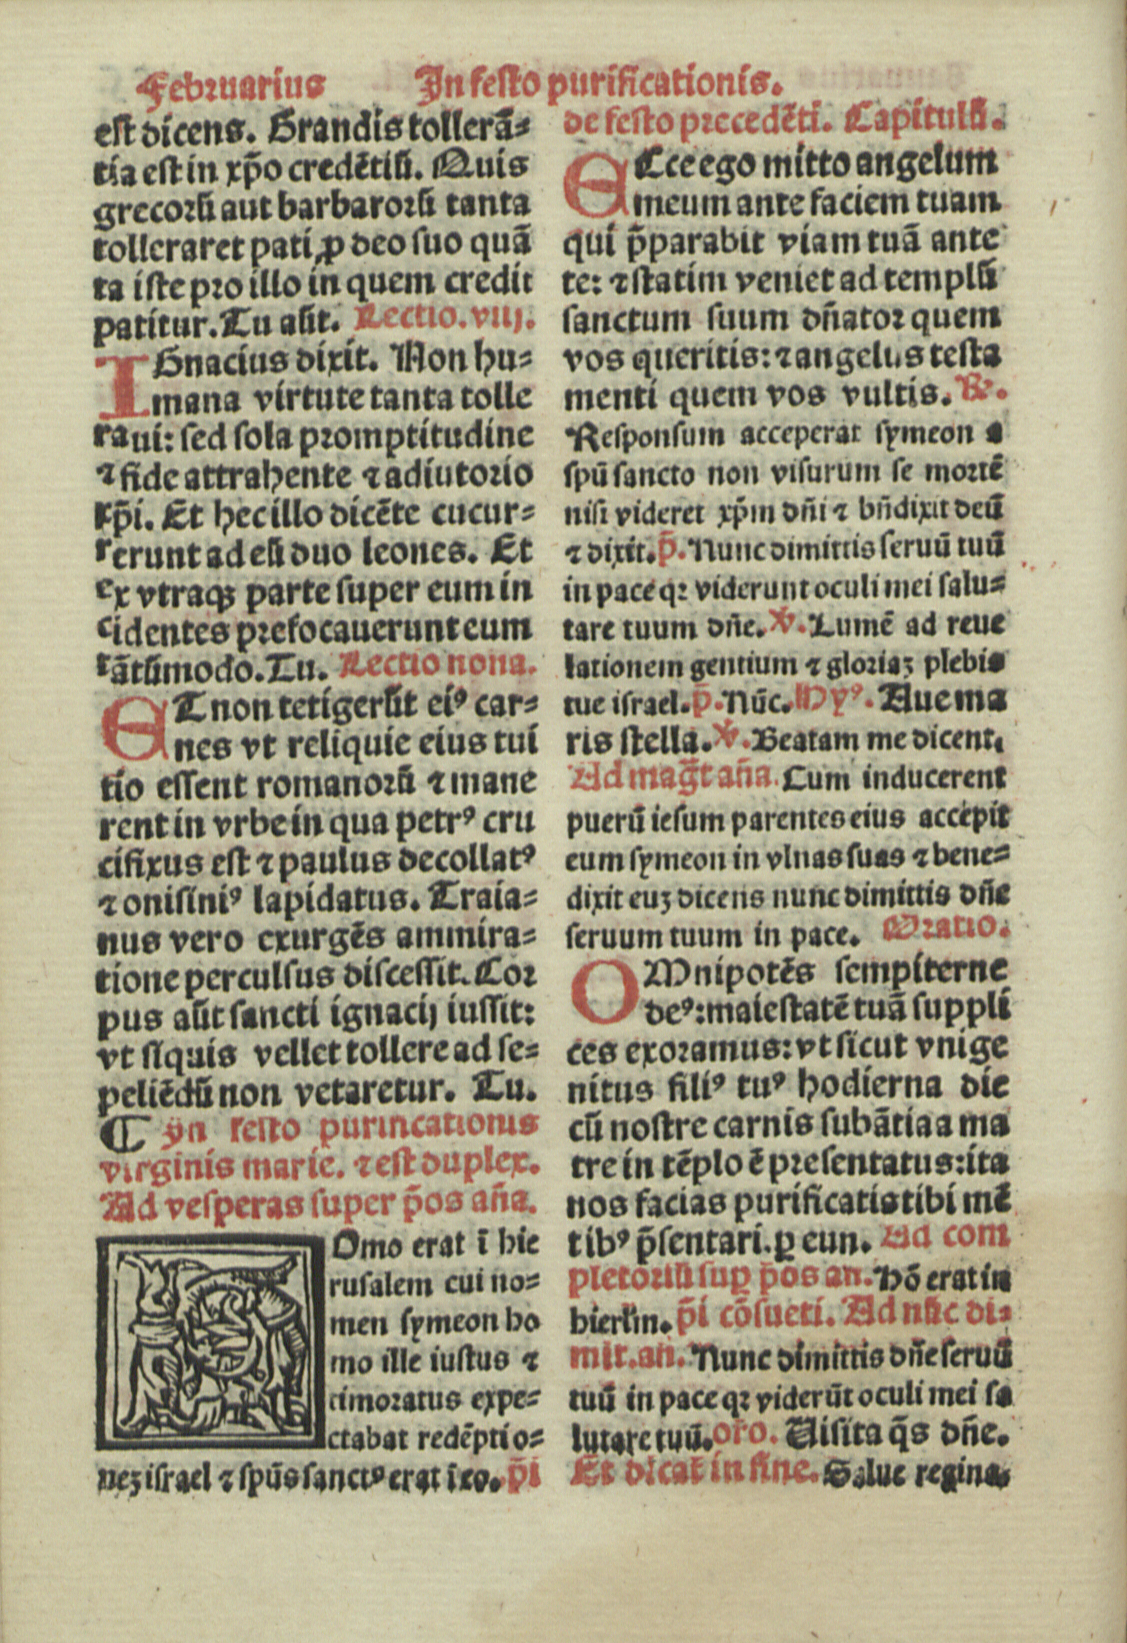 Februarius In festo purificationis.
est dicens. Grandis tollerā-
tia est in xp̄o credētiū. Quis
grecorū aut barbarorū tanta
tolleraret pati ꝓ deo suo quā
ta iste pro illo in quem credit
patitur. Tu aūt. Lectio. viij.
IGnacius dixit. Non hu-
mana virtute tanta tolle
raui: sed sola promptitudine
⁊ fide attrahente ⁊ adiutorio
xp̄i. Et hec illo dicēte cucur-
rerunt ad eū duo leones. Et
ex vtraqꝫ parte super eum in
cidentes prefocauerunt eum
tātūmodo. Tu. Lectio nona.
ET non tetigerūt eiꝰ car-
nes vt reliquie eius tui
tio essent romanorū ⁊ mane
rent in vrbe in qua petrꝰ cru
cifixus est ⁊ paulus decollatꝰ
⁊ onisiniꝰ lapidatus. Traia-
nus vero exurgēs ammira-
tione perculsus discessit. Cor
pus aūt sancti ignacij iussit:
vt siquis vellet tollere ad se-
peliēdū non vetaretur. Tu.
¶ yn festo purificationis
virginis marie. ⁊ est duplex.
Ad vesperas super p̄os an̄a.
Omo erat ī hie
rusalem cui no-
men symeon ho
mo ille iustus ⁊
timoratus expe-
ctabat redēptio-
neꝫ israel ⁊ spūs sanctꝰ erat ī eo. p̄i
de festo precedēti. Capitulū.
ECce ego mitto angelum
meum ante faciem tuam
qui p̄parabit viam tuā ante
te: ⁊ statim veniet ad templū
sanctum suum dn̄ator quem
vos queritis: ⁊ angelus testa
menti quem vos vultis. ℞.
Responsum acceperat symeon a
spū sancto non visurum se mortē
nisi videret xp̄m dn̄i ⁊ bn̄dixit deū
⁊ dixit. p̄. Nunc dimittis seruū tuū
in pace qꝛ viderunt oculi mei salu-
tare tuum dn̄e. ℣. Lumē ad reue
lationem gentium ⁊ gloriaꝫ plebis
tue israel. p̄. Nūc. Hyꝰ. Aue ma
ris stella. ℣. Beatam me dicent.
Ad mag̅t an̄a. Cum inducerent
puerū iesum parentes eius accepit
eum symeon in vlnas suas ⁊ bene-
dixit euꝫ dicens nunc dimittis dn̄e
seruum tuum in pace. Oratio.
OMnipotēs sempiterne
deꝰ: maiestatē tuā suppli
ces exoramus: vt sicut vnige
nitus filiꝰ tuꝰ hodierna die
cū nostre carnis subātia a ma
tre in tēplo ē presentatus: ita
nos facias purificatis tibi mē
tibꝰ p̄sentari. ꝑ eun. Ad com
pletoriū suꝑ p̄os an. Hō erat in
hierl̄m. p̄i cōsueti. Ad nūc di-
mit. an. Nunc dimittis dn̄e seruū
tuū in pace qꝛ viderūt oculi mei sa
lutare tuū. oro. Uisita q̄s dn̄e.
Et dicat̄ in fine. Salue regina.